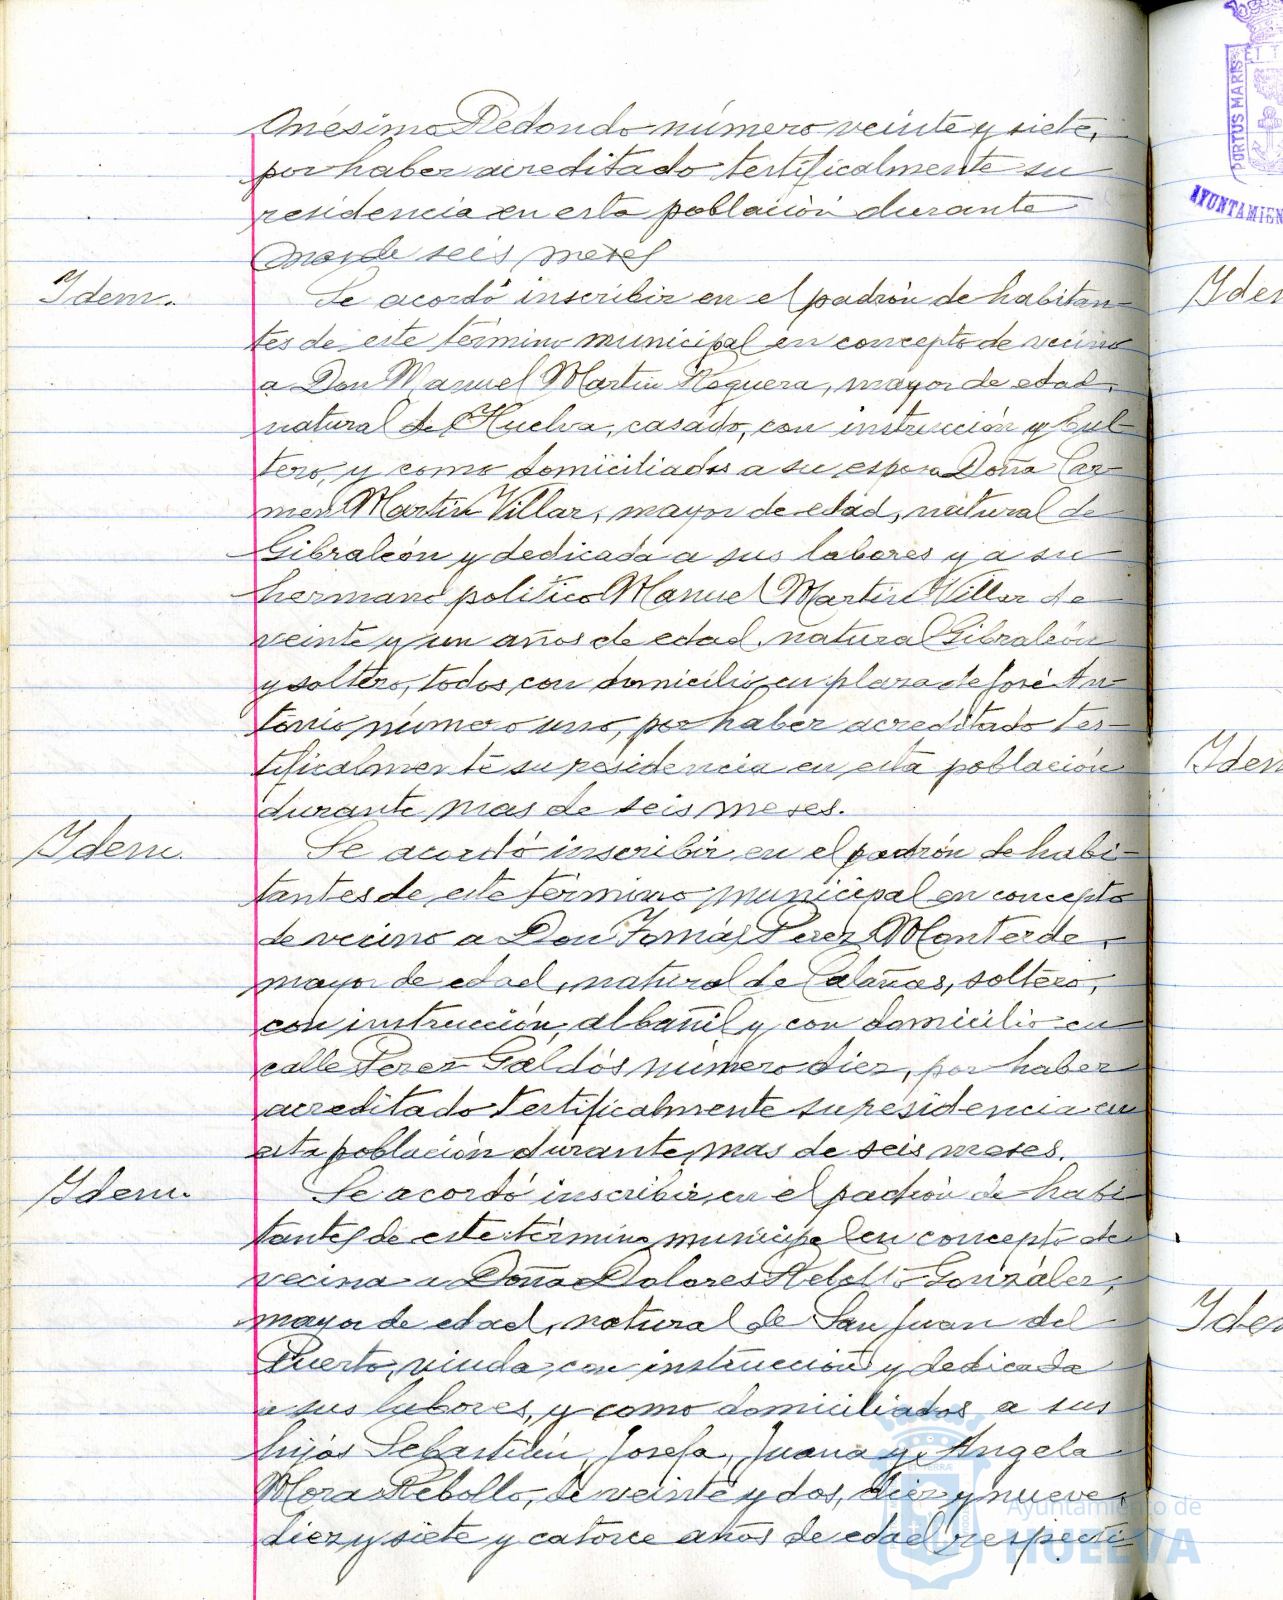 Onésimo Redondo número veinte y siete,
por haber acreditado testificalmente su
residencia en esta población durante
mas de seis meses
Idem. Se acordó inscribir en el padrón de habitan-
tes de este término municipal en concepto de vecino
a Don Manuel Martín Noguera, mayor de edad,
natural de Huelva, casado, con instrucción y
tero, y como domiciliados a su esposa Doña Car-
men Martín Villar, mayor de edad, natural de
Gibraleón y dedicada a sus labores y a su
hermano político Manuel Martín Villar de
veinte y un años de edad, natural Gibraleón
y soltero, todos con domicilio en plaza de José An-
tonio número uno, por haber acreditado tes-
tificalmente su residencia en esta población
durante mas de seis meses.
Idem. Se acordó inscribir en el padrón de habi-
tantes de este término municipal en concepto
de vecino a Don Tomás Perez Monterde,
mayor de edad, natural de Calañas, soltero,
con instrucción, albañil y con domicilio en
calle Perez Galdós número diez, por haber
acreditado testificalmente su residencia en
esta población durante mas de seis meses.
Idem. Se acordó inscribir en el padrón de habi-
tantes de este término municipal en concepto de
vecina a Doña Dolores Rebollo González,
mayor de edad, natural de San Juan del
Puerto, viuda, con instrucción y dedicada
a sus labores, y como domiciliados a sus
hijos Sebastián, Josefa, Juana y Angela
Mora Rebollo, de veinte y dos, diez y nueve,
diez y siete y catorce años de edad respecti
PORTUS MARIS
AYUNTAMIEN
Idem
Idem
Idem
Ayuntamiento de
HUELVA